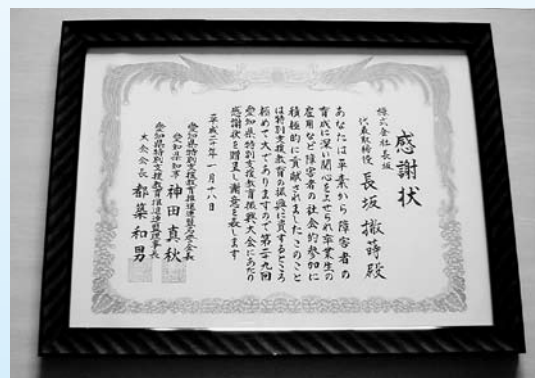 感謝状
株式会社長坂
代表取締役 長坂 撤蒔殿
あなたは平素から障害者の
育成に深い関心をよせられ卒業生の
雇用など障害者の社会的参加に
積極的に貢献されましたこのこと
は特別支援教育の振興に資するところ
極めて大でありますので第二九回
愛知県特別支援教育振興大会にあたり
感謝状を贈呈し謝意を表します
平成二十年一月十八日
愛知県特別支援教育推進連盟名誉会長
愛知県知事 神田真秋
愛知県特別支援教育推進連盟理事長
大会会長 都築和男